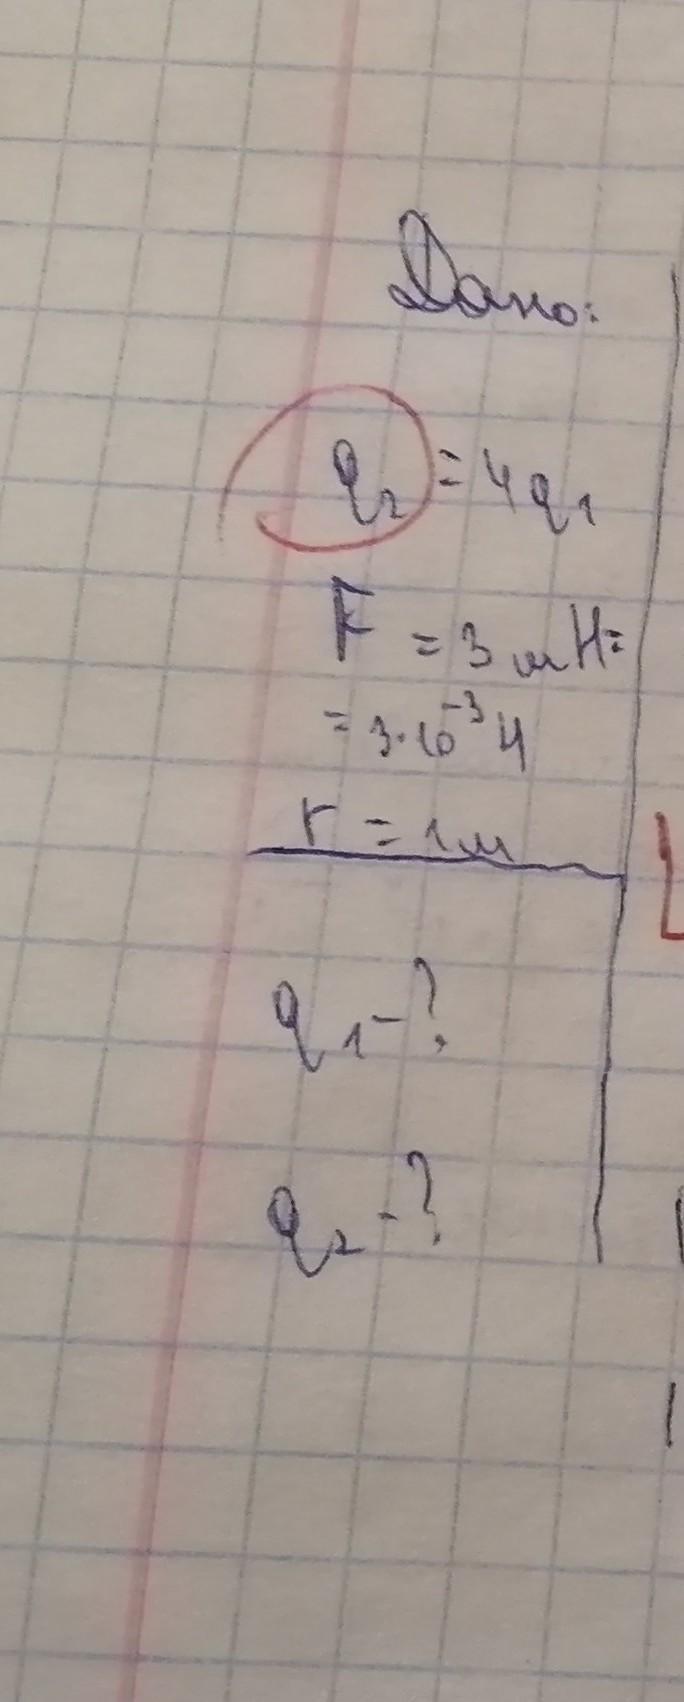 Дано:
q₂ = 4q₁
F = 3 мН =
= 3·10⁻³ Н
r = 1м
q₁ - ?
q₂ - ?